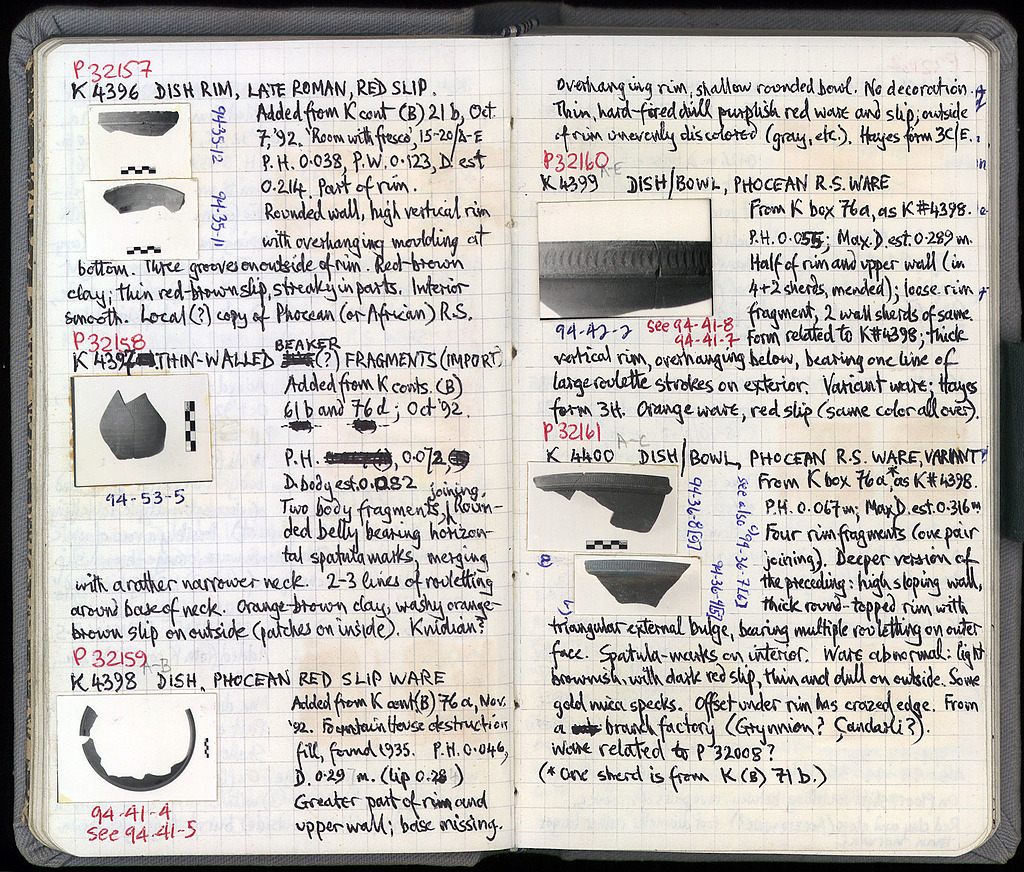 P 32157
K 4396 DISH RIM, LATE ROMAN, RED SLIP.
Added from K cont (B) 21 b, Oct.
7, '92. 'Room with fresco', 15-20/Δ-E
P.H. 0.038, P.W. 0.123, D. est
0.214. Part of rim.
Rounded wall, high vertical rim
with overhanging moulding at
bottom. Three grooves on outside of rim. Red-brown
clay; thin red-brown slip, streaky in parts. Interior
smooth. Local (?) copy of Phocean (or African) R.S.
94-35-12
94-35-11
P 32158
BEAKER
K 4397 THIN-WALLED (?) FRAGMENTS (IMPORT)
Added from K conts. (B)
61 b and 76 d; Oct '92.
P.H. 0.072,
D. body est. 0.082
joining.
Two body fragments, Roun-
ded belly bearing horizon-
tal spatula marks, merging
with a rather narrower neck. 2-3 lines of rouletting
around base of neck. Orange-brown clay, washy orange-
brown slip on outside (patches on inside). Knidian?
94-53-5
P 32159
A-B
K 4398 DISH, PHOCEAN RED SLIP WARE
Added from K cont (B) 76 a, Nov.
'92. Fountain House destruction
fill, found 1935. P.H. 0.046,
D. 0.29 m. (lip 0.28)
Greater part of rim and
upper wall; base missing.
94-41-4
see 94-41-5
Overhanging rim, shallow rounded bowl. No decoration.
Thin, hard-fired dull purplish red ware and slip; outside
of rim unevenly discolored (gray, etc.). Hayes form 3C/E.
P 32160
A-E
K 4399 DISH/BOWL, PHOCEAN R.S. WARE
From K box 76a, as K#4398.
P.H. 0.055; Max. D. est. 0.289 m.
Half of rim and upper wall (in
4+2 sherds, mended); loose rim
fragment, 2 wall sherds of same.
Form related to K#4398; thick
vertical rim, overhanging below, bearing one line of
large roulette strokes on exterior. Variant ware; Hayes
form 3H. Orange ware, red slip (same color all over).
94-42-2
see 94-41-8
94-41-7
P 32161
A-C
K 4400 DISH/BOWL, PHOCEAN R.S. WARE, VARIANT
From K box 76a,* as K#4398.
P.H. 0.067 m; Max D. est. 0.316 m
Four rim fragments (one pair
joining). Deeper version of
the preceding: high sloping wall,
thick round-topped rim with
triangular external bulge, bearing multiple rouletting on outer
face. Spatula-marks on interior. Ware abnormal: light
brownish, with dark red slip, thin and dull on outside. Some
gold mica specks. Offset under rim has crazed edge. From
a branch factory (Grynnion? Çandarli?).
Ware related to P 32008?
(* One sherd is from K (B) 71 b.)
a)
b)
94-36-8[5]
94-36-9[5]
see also 94-36-7[6]